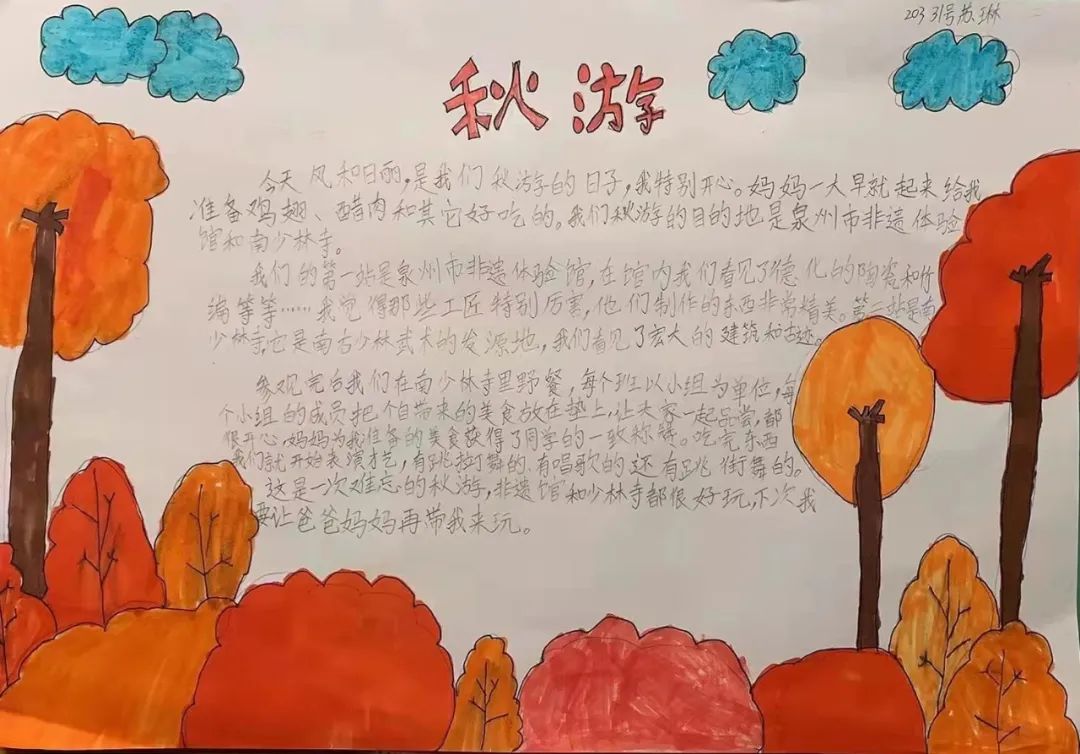 203 31号苏琳
秋游
今天风和日丽,是我们秋游的日子,我特别开心。妈妈一大早就起来给我
准备鸡翅、醋肉和其它好吃的。我们秋游的目的地是泉州市非遗体验
馆和南少林寺。
我们的第一站是泉州市非遗体验馆,在馆内我们看见了德化的陶瓷和竹
编等等……我觉得那些工匠特别厉害,他们制作的东西非常精美。第二站是南
少林寺,它是南古少林武术的发源地,我们看见了宏大的建筑和古迹。
参观完后我们在南少林寺里野餐,每个班以小组为单位,每
个小组的成员把个自带来的美食放在垫上,让大家一起品尝,都
很开心,妈妈为我准备的美食获得了同学的一致称赞。吃完东西
我们就开始表演才艺,有跳拉丁舞的、有唱歌的还有跳街舞的。
这是一次难忘的秋游,非遗馆和少林寺都很好玩,下次我
要让爸爸妈妈再带我来玩。